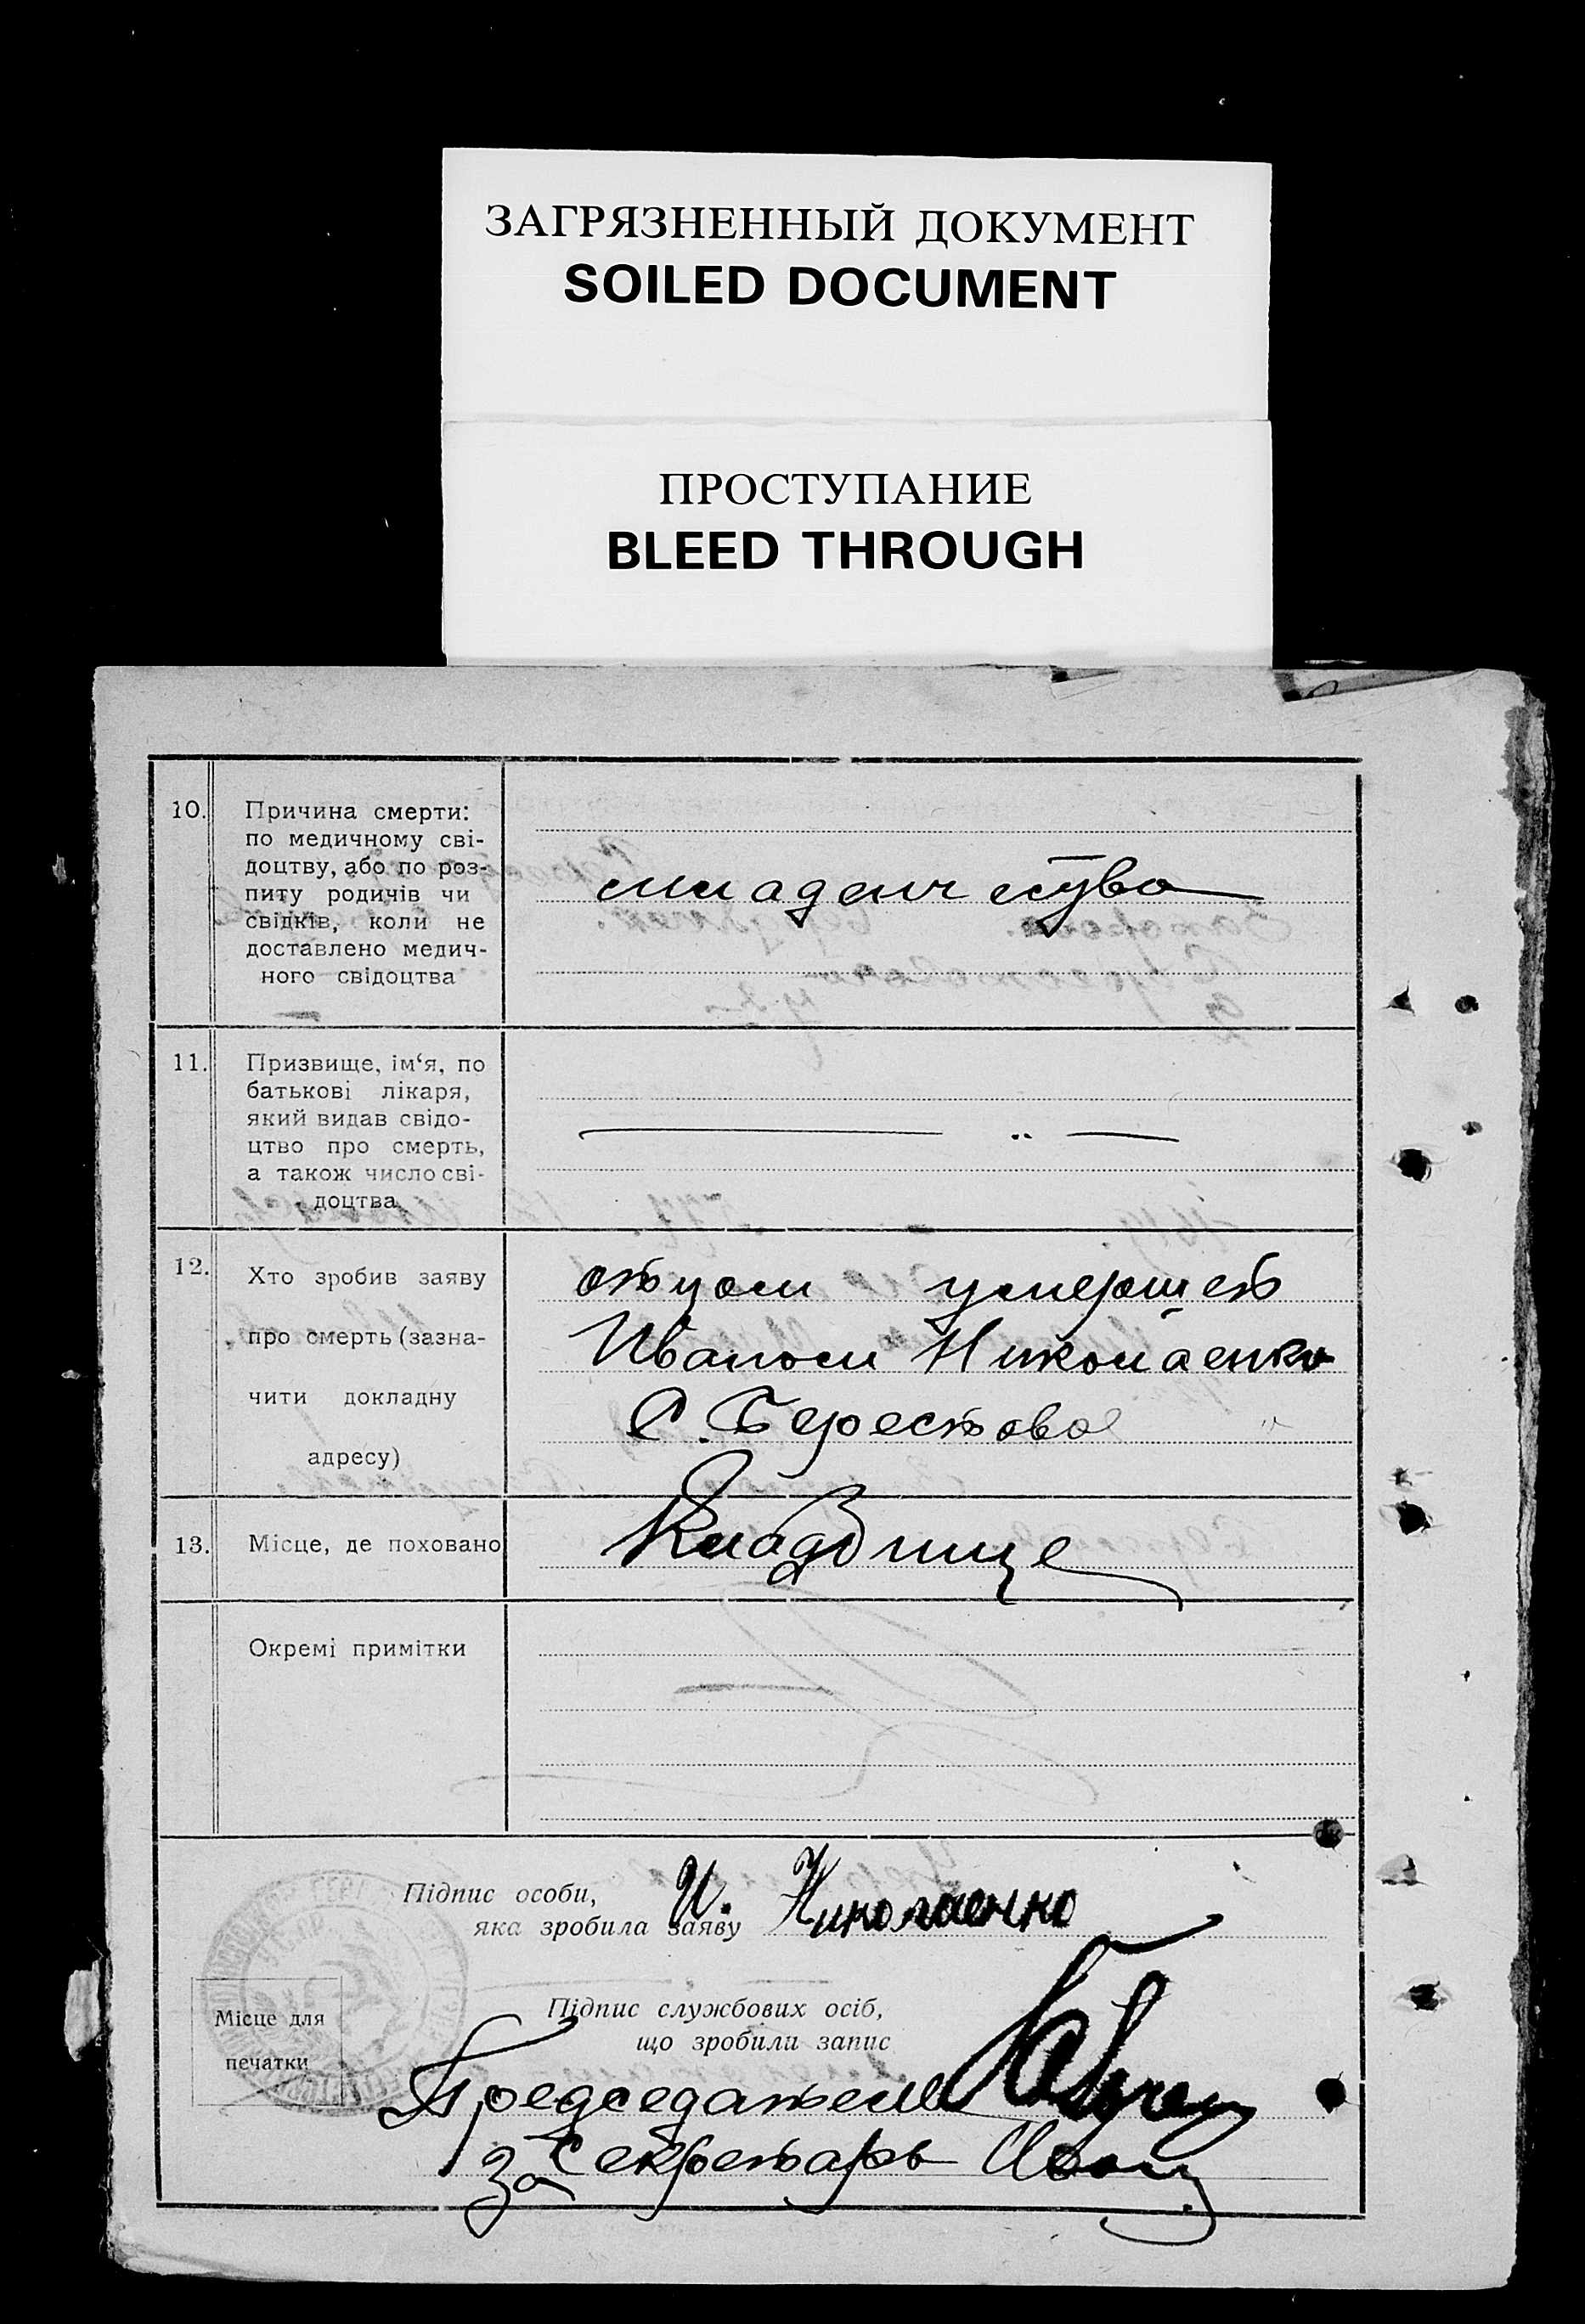 ЗАГРЯЗНЕННЫЙ ДОКУМЕНТ
SOILED DOCUMENT
ПРОСТУПАНИЕ
BLEED THROUGH
10. Причина смерти:
по медичному сві-
доцтву, або по роз-
питу родичів чи
свідків, коли не
доставлено медич-
ного свідоцтва
младенчество
11. Призвище, ім‘я, по
батькові лікаря,
який видав свідо-
цтво про смерть,
а також число сві-
доцтва
12. Хто зробив заяву
про смерть (зазна-
чити докладну
адресу)
отцом умершей
Иваном Николаенко
С. Берестовое
13. Місце, де поховано
Кладбище
Окремі примітки
Підпис особи,
яка зробила заяву
И. Николаенко
Місце для
печатки
Підпис службових осіб,
що зробили запис
Председатель
за Секретарь